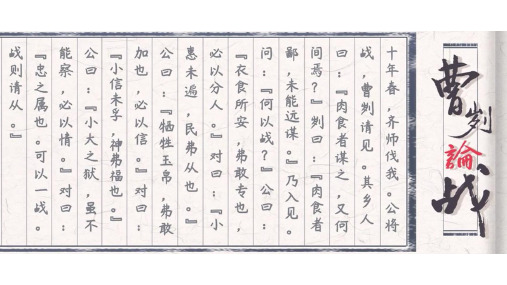 曹刿論战
十年春，齐师伐我。公将
战，曹刿请见。其乡人
曰：『肉食者谋之，又何
间焉？』刿曰：『肉食者
鄙，未能远谋。』乃入见。
问：『何以战？』公曰：
『衣食所安，弗敢专也，
必以分人。』对曰：『小
惠未遍，民弗从也。』
公曰：『牺牲玉帛，弗敢
加也，必以信。』对曰：
『小信未孚，神弗福也。』
公曰：『小大之狱，虽不
能察，必以情。』对曰：
『忠之属也。可以一战。
战则请从。』